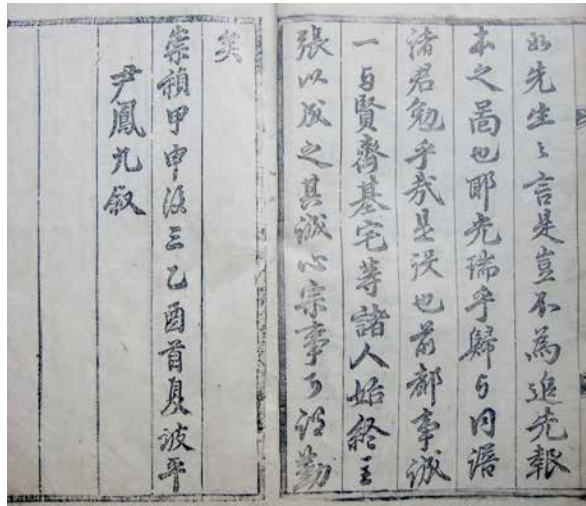 如先生之言是豈不為追先報
本之啚也耶先瑞乎歸与同譜
諸君勉乎哉是役也前都事誠
一与賢齋基宅等諸人始終主
張以成之其誠心宗事可謂勤
矣
崇禎甲申後三乙酉首夏波平
尹鳳九叙